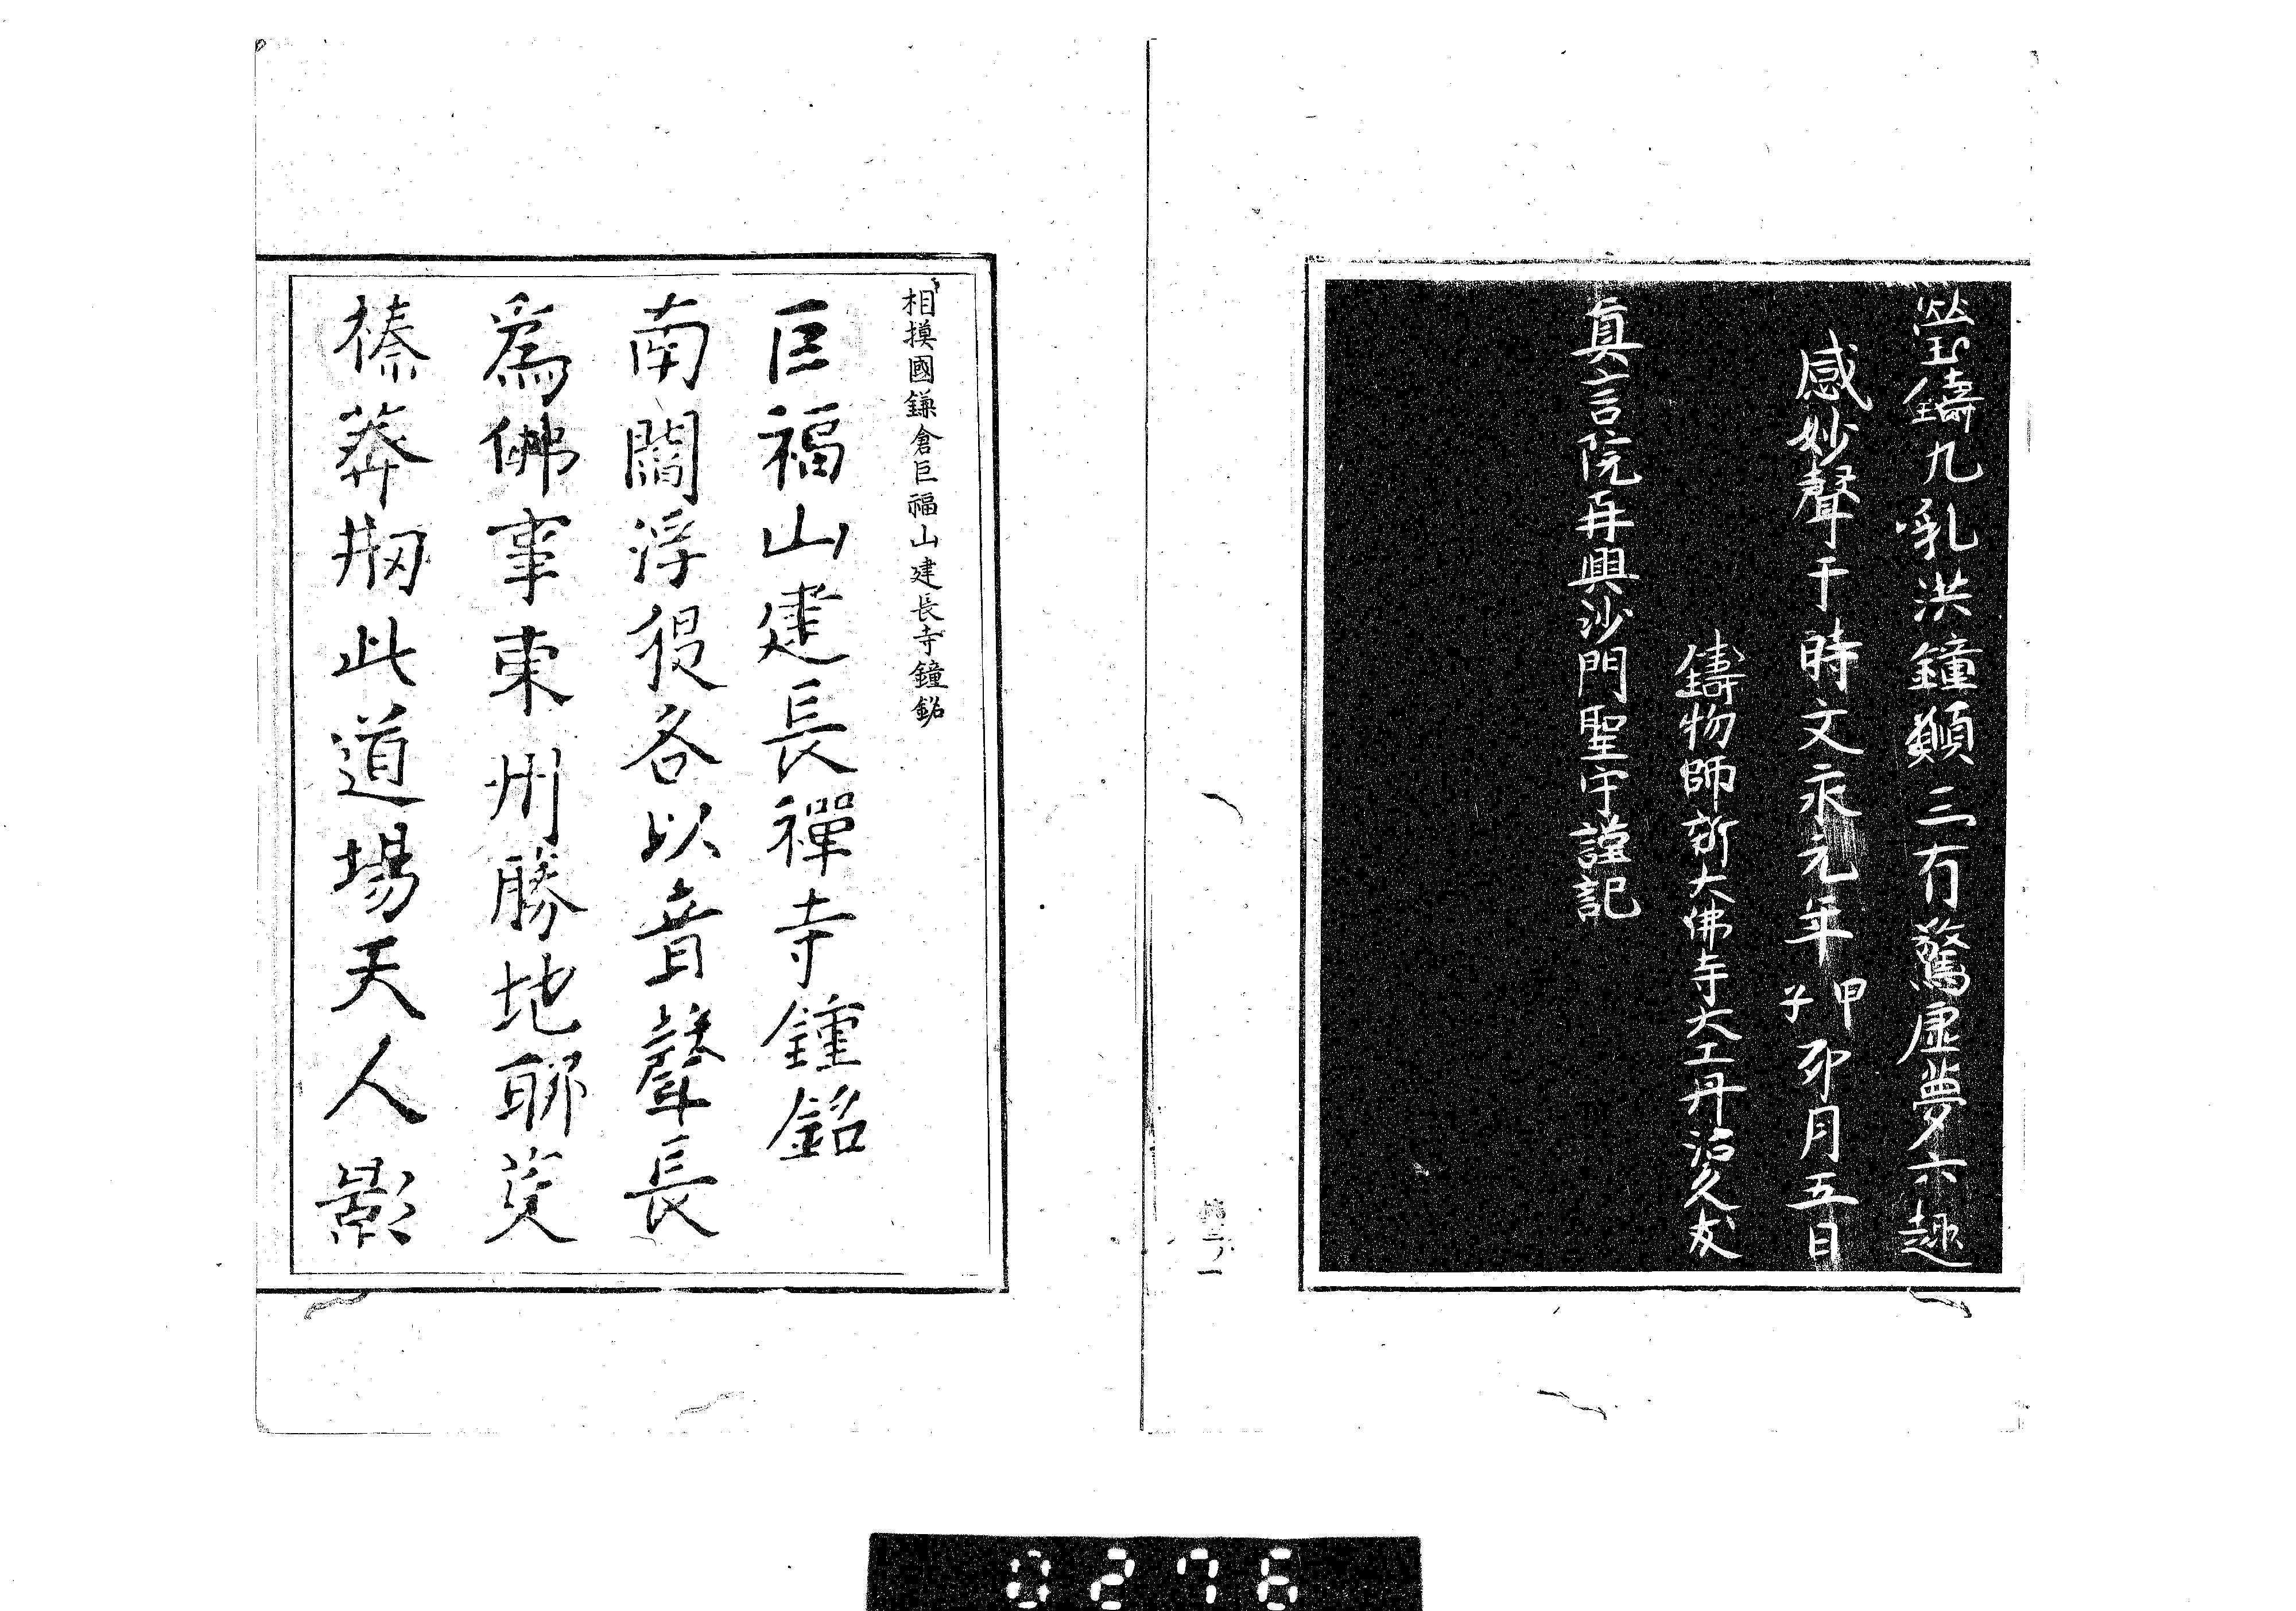 瑩鑄九乳洪鐘顚三有驚虛夢六趣
感妙聲于時文永元年甲子卯月五日
鑄物師新大佛寺大工丹治久友
眞言院再興沙門聖守謹記
相摸國鎌倉巨福山建長寺鐘銘
巨福山建長禪寺鐘銘
南閻浮提各以音聲長
爲佛事東州勝地聊芟
榛莽刱此道場天人影
0276